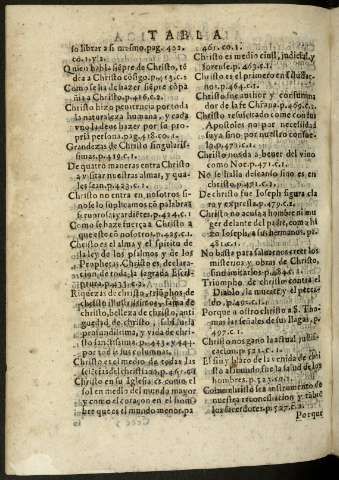 TABLA
so librar a si mesmo. pag. 402.
co. 1. y 2.
Quien habla siẽpre de Christo, tẽ
dra a Christo cõsigo. p. 413. c. 2
Como se ha de hazer siẽpre cõpa
ñia a Christo. p. 416. c. 2.
Christo hizo penitencia por toda
la naturaleza humana, y cada
vno la deue hazer por su pro
pria persona. pag. 418. co. 1.
Grandezas de Christo singularis
simas. p. 419. c. 1.
De quatro maneras entra Christo
a visitar nuestras almas, y qua
les sean. p. 423. c. 1.
Christo no entra en nosotros si
no se lo suplicamos cõ palabras
feruorosas y ardiẽtes. p. 424. c. 1
Como se haze fuerça a Christo a
que este cõ nosotros. p. 425. c. 1.
Christo es el alma y el spiritu de
la ley de los psalmos y de los
Prophetas Christo es, declara-
cion, de toda la sagrada Escri-
ptura. p. 433. c. 2.
Riquezas de christo, triũphos de
christo
christo, belleza de christo, anti
guedad de christo, sabiduria
profundissima, y vida de chri-
sto
por todas sus columnas.
Christo es el medio de todas las
Christo en su Iglesia es como el
sol en medio del mundo mayor
y como el coraçon en el hom
bre que es el mundo menor. pa
461. co. 1.
Christo es medio ciuil, judicial, y
forense. p. 463. c. 1.
Christo es el primero en
nos. p. 464. c. 1.
Christo fue author y consumma
dor de la fe Chriana. p. 469. c. 2
Christo resuscitado come con sus
Apostoles no por necessidad
suya sino, por nuestro consue
lo. p. 471. c. 1.
a beuer del vino
como Noe. p. 471. c. 1.
No se halla descanso sino es en
christo. p. 471. c. 2.
De christo fue Ioseph figura cla
ra y expressa. p. 479. c. 2.
Christo no acusa a hombre ni mu
ger delante del padre, como hi
zo Ioseph a sus hermanos. p.
481. c. 1.
No basta para saluarnos creer los
misterios y obras de Christo,
Triumpho de christo contra el
Diablo, la muerte y el pecca-
do. p. 492. c. 1.
Porque a ostro christo a S. Tho
mas las señales de sus llagas. p.
497. c. 1.
Christo nos gano la actual justifi-
cacion. p. 522. c. 1.
El fin y blaco de la venida de chri
sto al mundo fue la salud de los
hombres. p. 523. c. 1.
Como christo sea instrumento de
nuestra reconciliacion y
sacerdote. p. 527. c. 2.
Porque